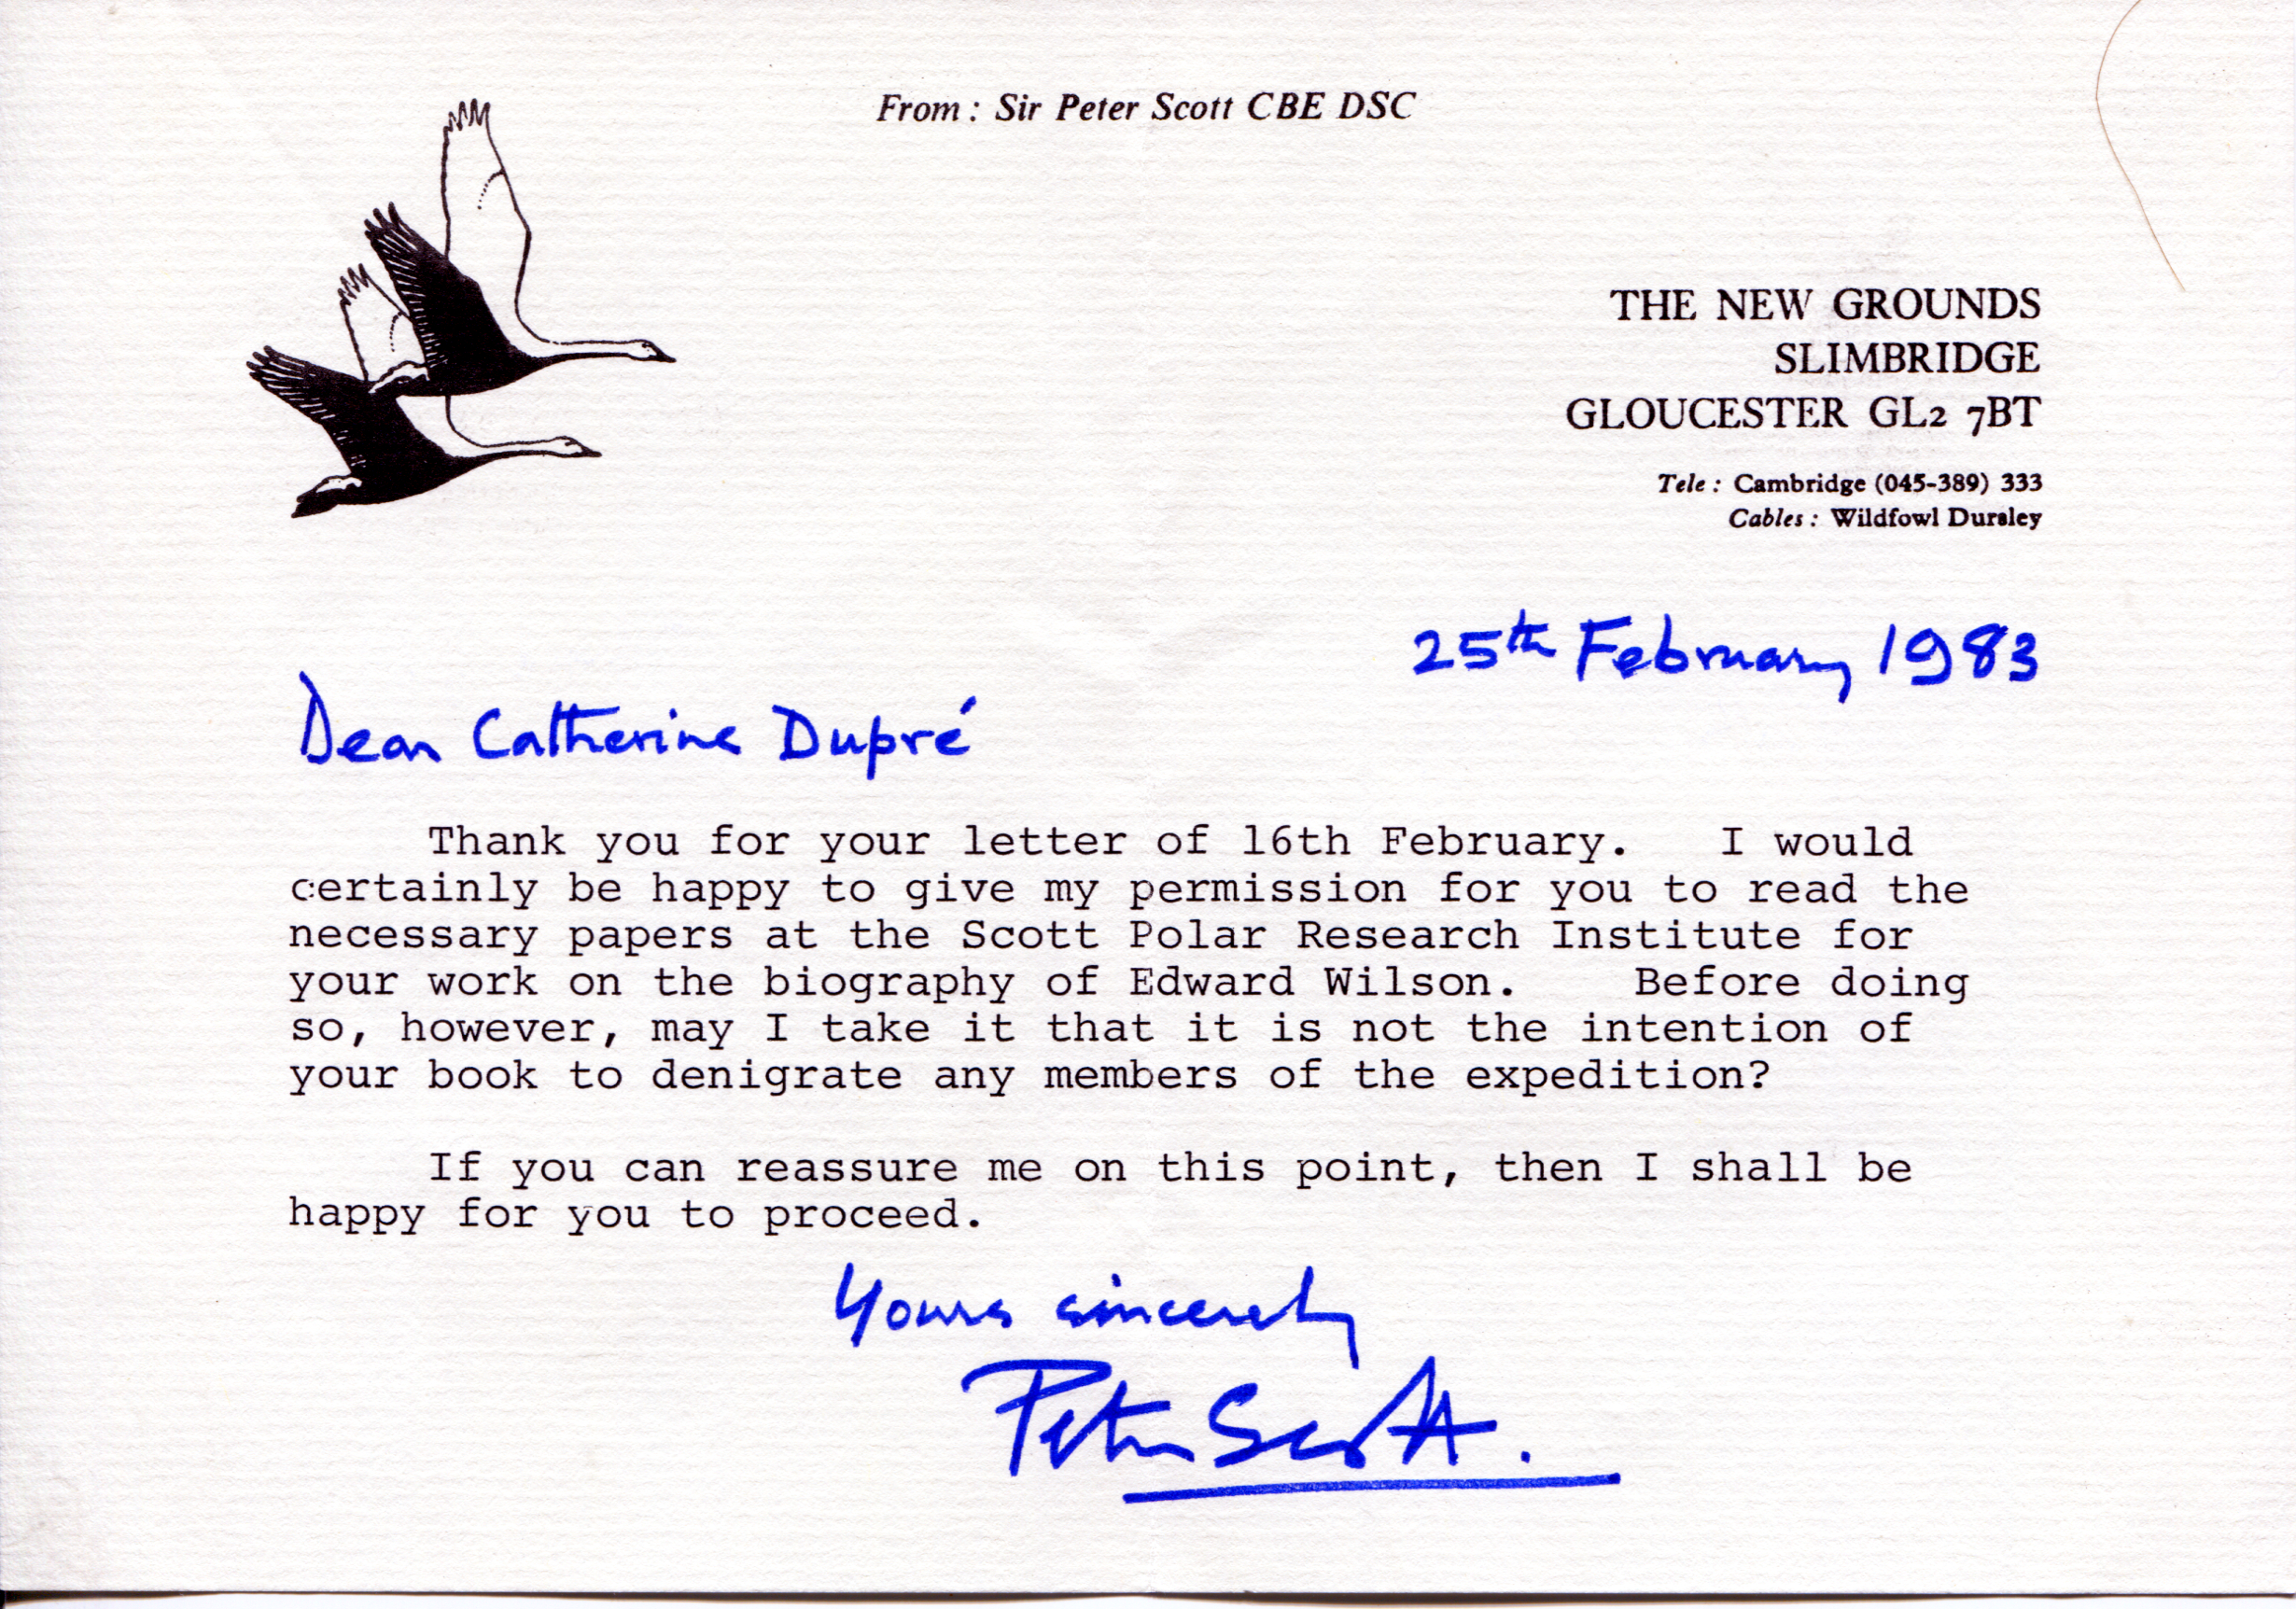 From : Sir Peter Scott CBE DSC
THE NEW GROUNDS
SLIMBRIDGE
GLOUCESTER GL2 7BT
Tele : Cambridge (045-389) 333
Cables : Wildfowl Dursley
25th February 1983
Dear Catherine Dupré
Thank you for your letter of 16th February. I would
certainly be happy to give my permission for you to read the
necessary papers at the Scott Polar Research Institute for
your work on the biography of Edward Wilson. Before doing
so, however, may I take it that it is not the intention of
your book to denigrate any members of the expedition?
If you can reassure me on this point, then I shall be
happy for you to proceed.
Yours sincerely
Peter Scott.